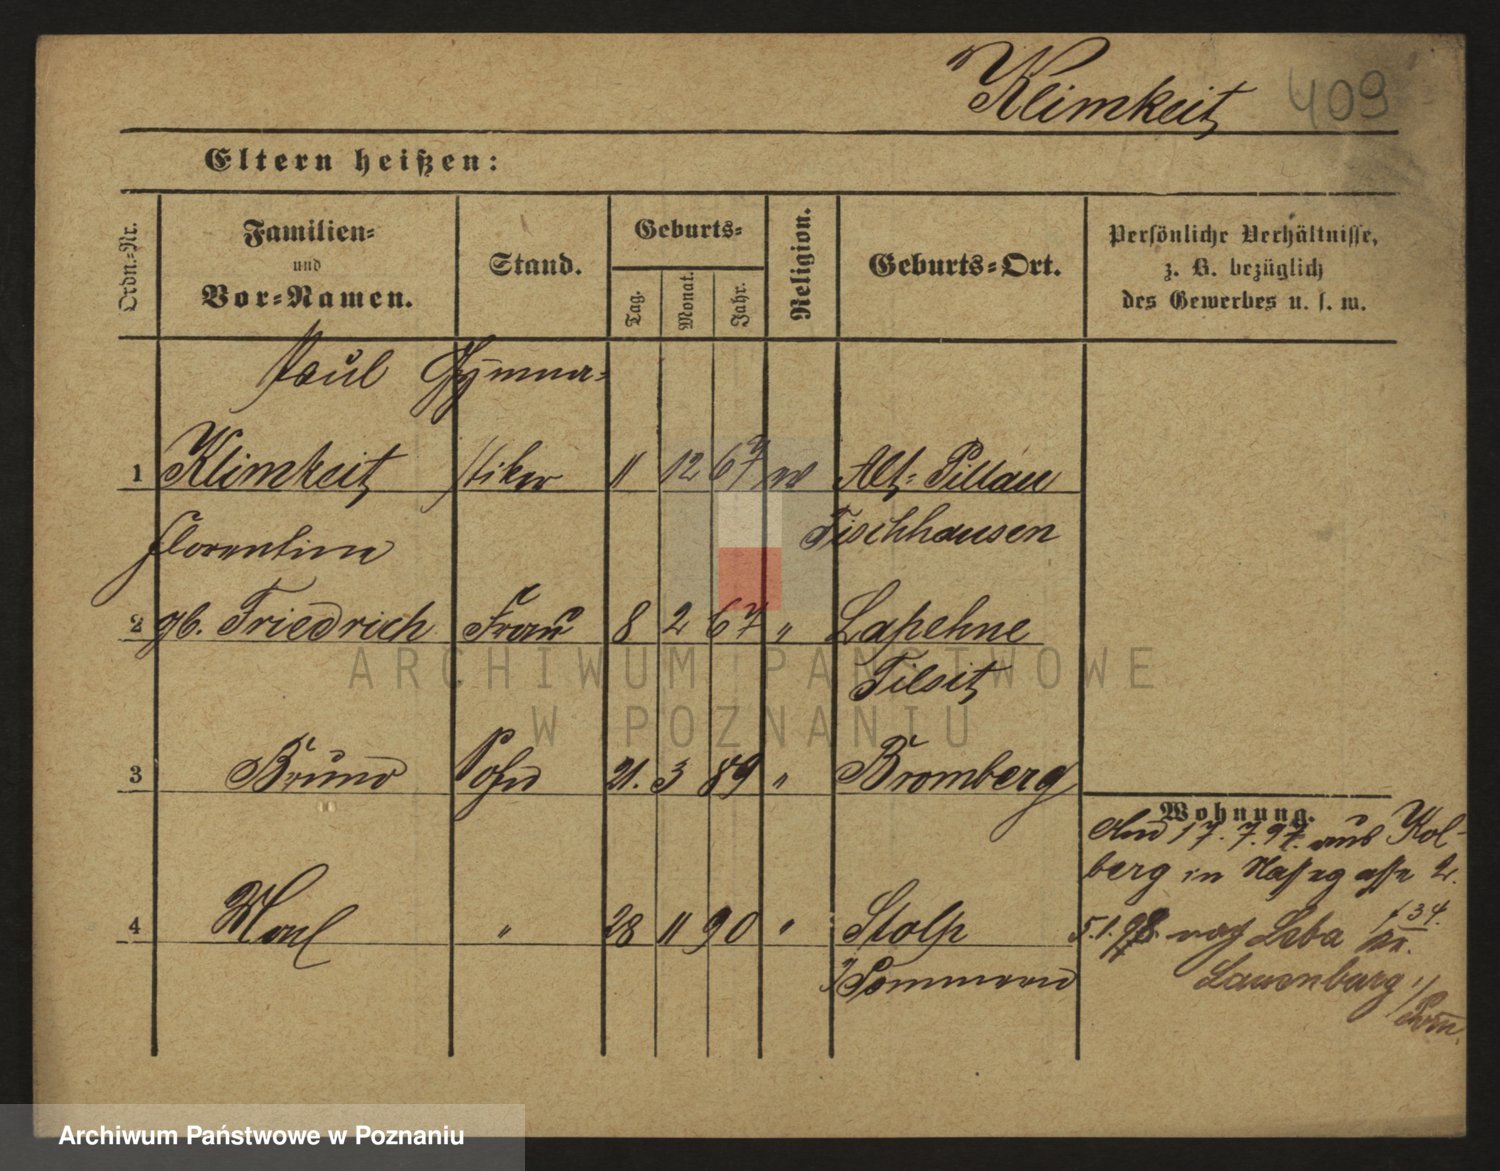 Klimkeit 409
Eltern heißen:
Ordn.-Nr. Familien- und Vor-Namen. Stand. Geburts- Tag. Monat. Jahr. Religion. Geburts-Ort. Persönliche Verhältnisse, z. B. bezüglich des Gewerbes u. s. w.
Paul Gymna-
1 Klimkeit stiker 11 12 67 Alt-Pillau
Florentine Fischhausen
2 gb. Friedrich Frau 8 2 67 " Lapehne
Tilsit
ARCHIWUM PAŃSTWOWE
W POZNANIU
3 Bruno Sohn 21. 3 89 " Bromberg
Wohnung.
17.7.97. aus Kol-
berg in 2.
4 " 28 11 90 " Stolp 5.1.98. nach Leba
i/Pommern Lauenburg i/
Pom.
Archiwum Państwowe w Poznaniu